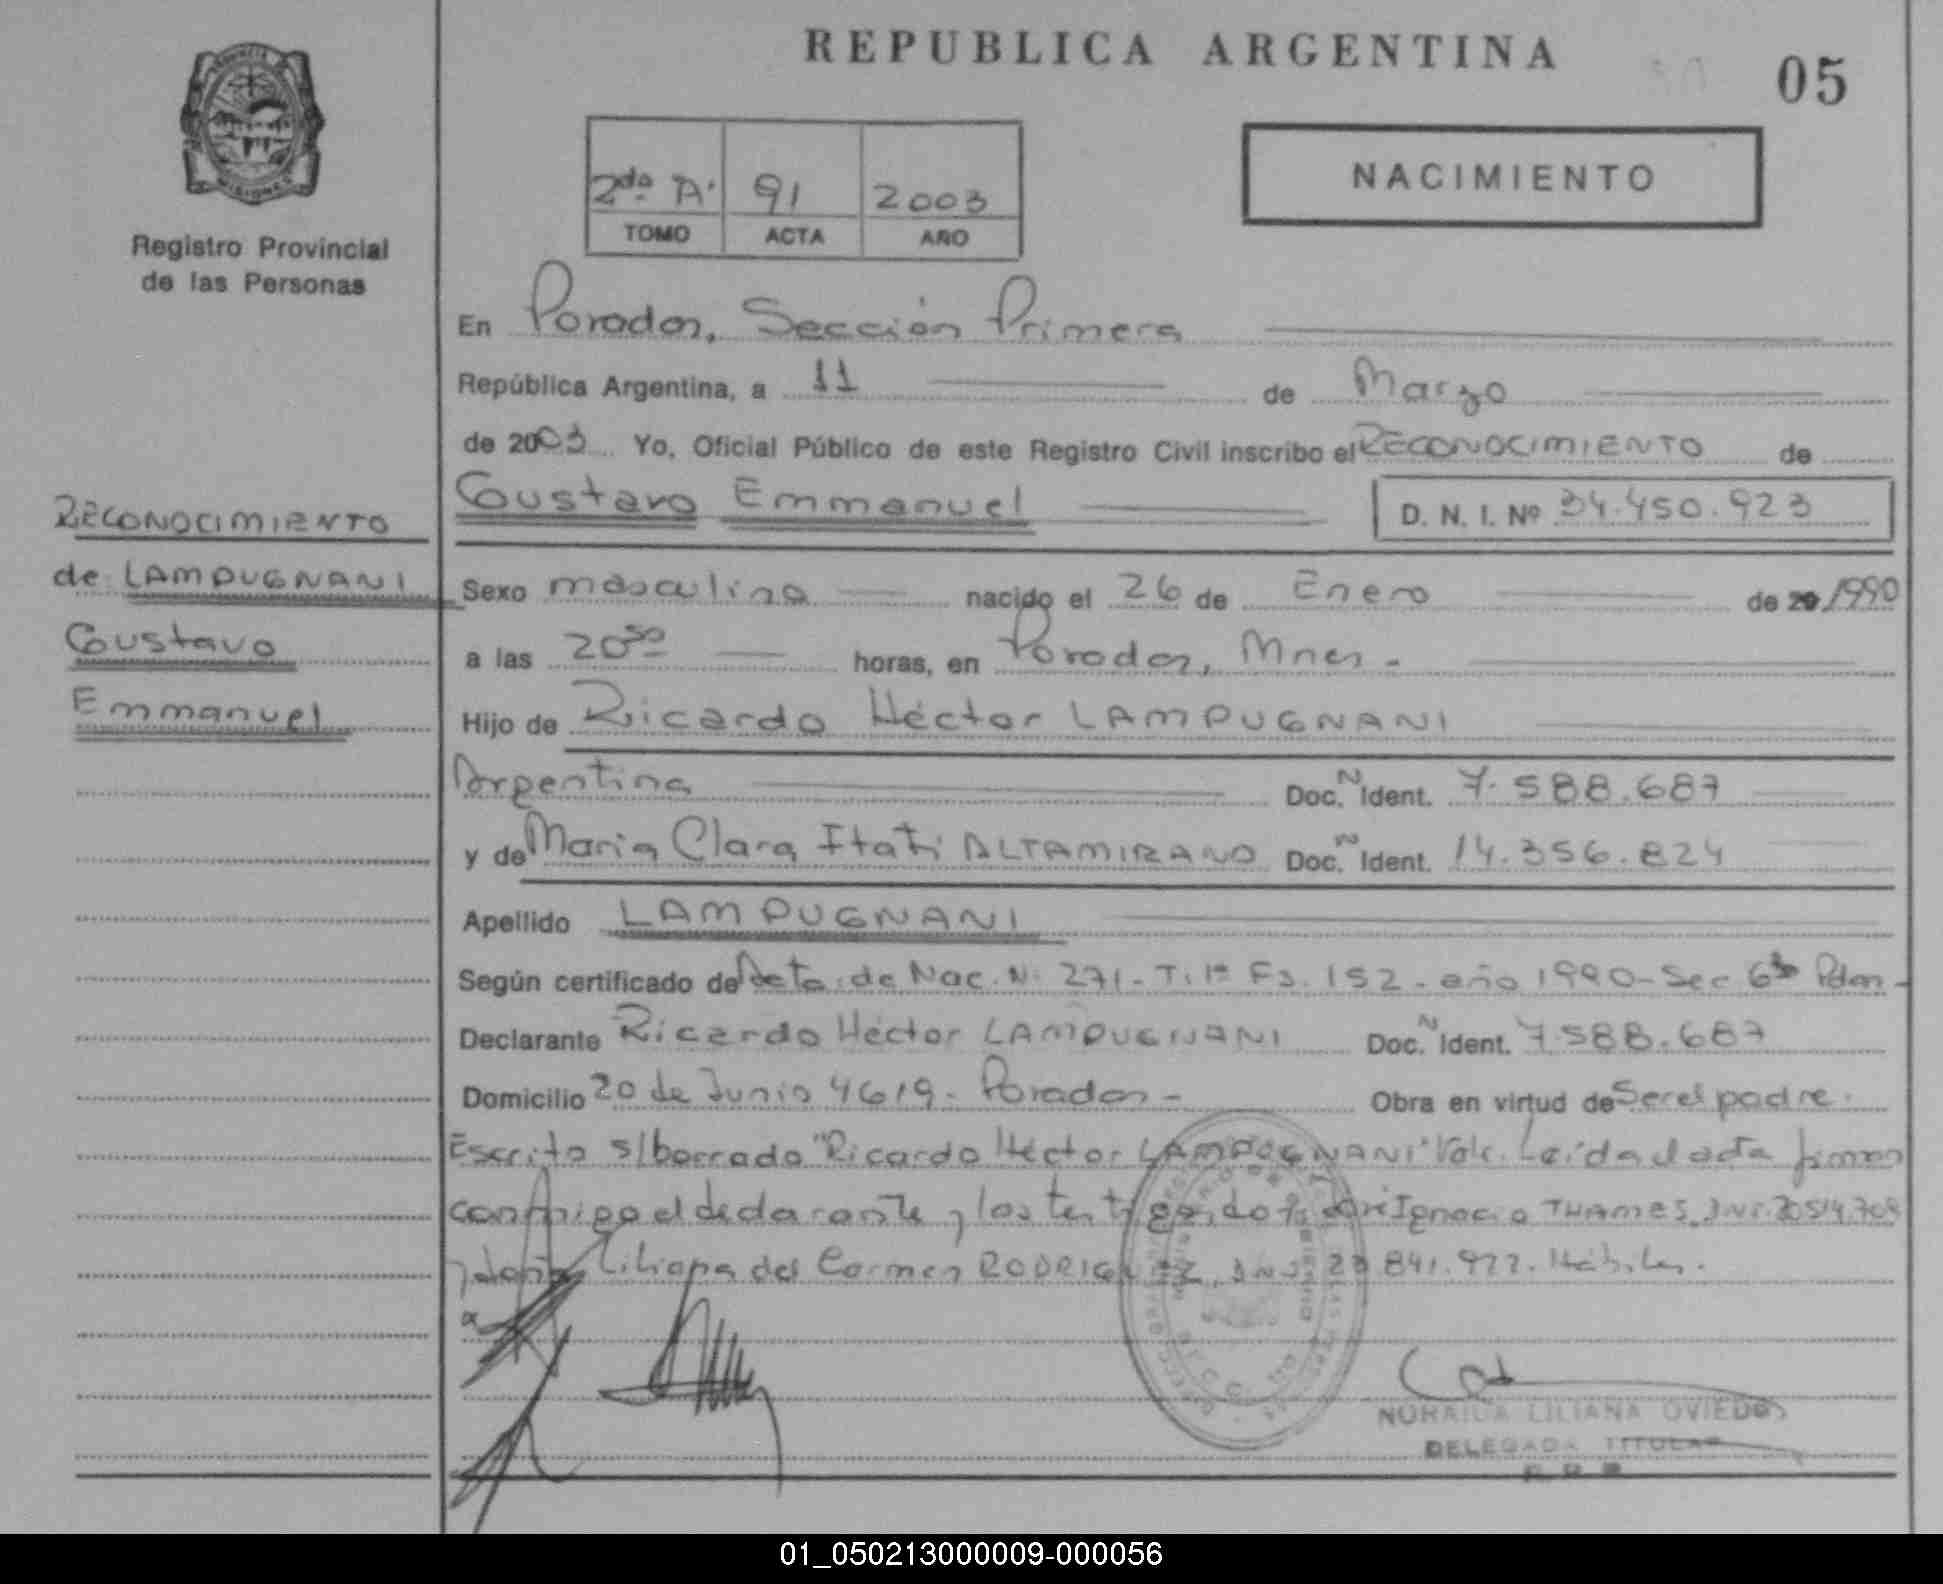 REPUBLICA ARGENTINA
05
PROVINCIA
MISIONES
Registro Provincial
de las Personas
2da A.
91
2003
TOMO
ACTA
AÑO
NACIMIENTO
En Posadas, Sección Primera
República Argentina, a 11 de Marzo
de 2003 Yo, Oficial Público de este Registro Civil inscribo el RECONOCIMIENTO de
Gustavo Emmanuel
D. N. I. Nº 34.450.923
RECONOCIMIENTO
de LAMPUGNANI
Gustavo
Emmanuel
Sexo masculino nacido el 26 de Enero de 20 /1990
a las 20 30 horas, en Posadas, Mnes.
Hijo de Ricardo Héctor LAMPUGNANI
Argentina Doc. N Ident. 7.588.687
y de Maria Clara Itati ALTAMIRANO Doc. N Ident. 14.356.824
Apellido LAMPUGNANI
Según certificado de Acta de Nac. N: 271 - T. 1º Fs. 152 - año 1990 - Sec 6ta Pdas -
Declarante Ricardo Héctor LAMPUGNANI Doc. N Ident. 7.588.687
Domicilio 20 de Junio 4619 - Posadas - Obra en virtud de Ser el padre.
Escrito s/borrado "Ricardo Héctor LAMPUGNANI" Vale. Leída el acta firman
conmigo el declarante y los testigos, José Ignacio THAMES
y doña Liliana del Carmen RODRIGUEZ, 841.922. Hábiles.
NORAIDA LILIANA OVIEDO
DELEGADA TITULAR
01_050213000009-000056